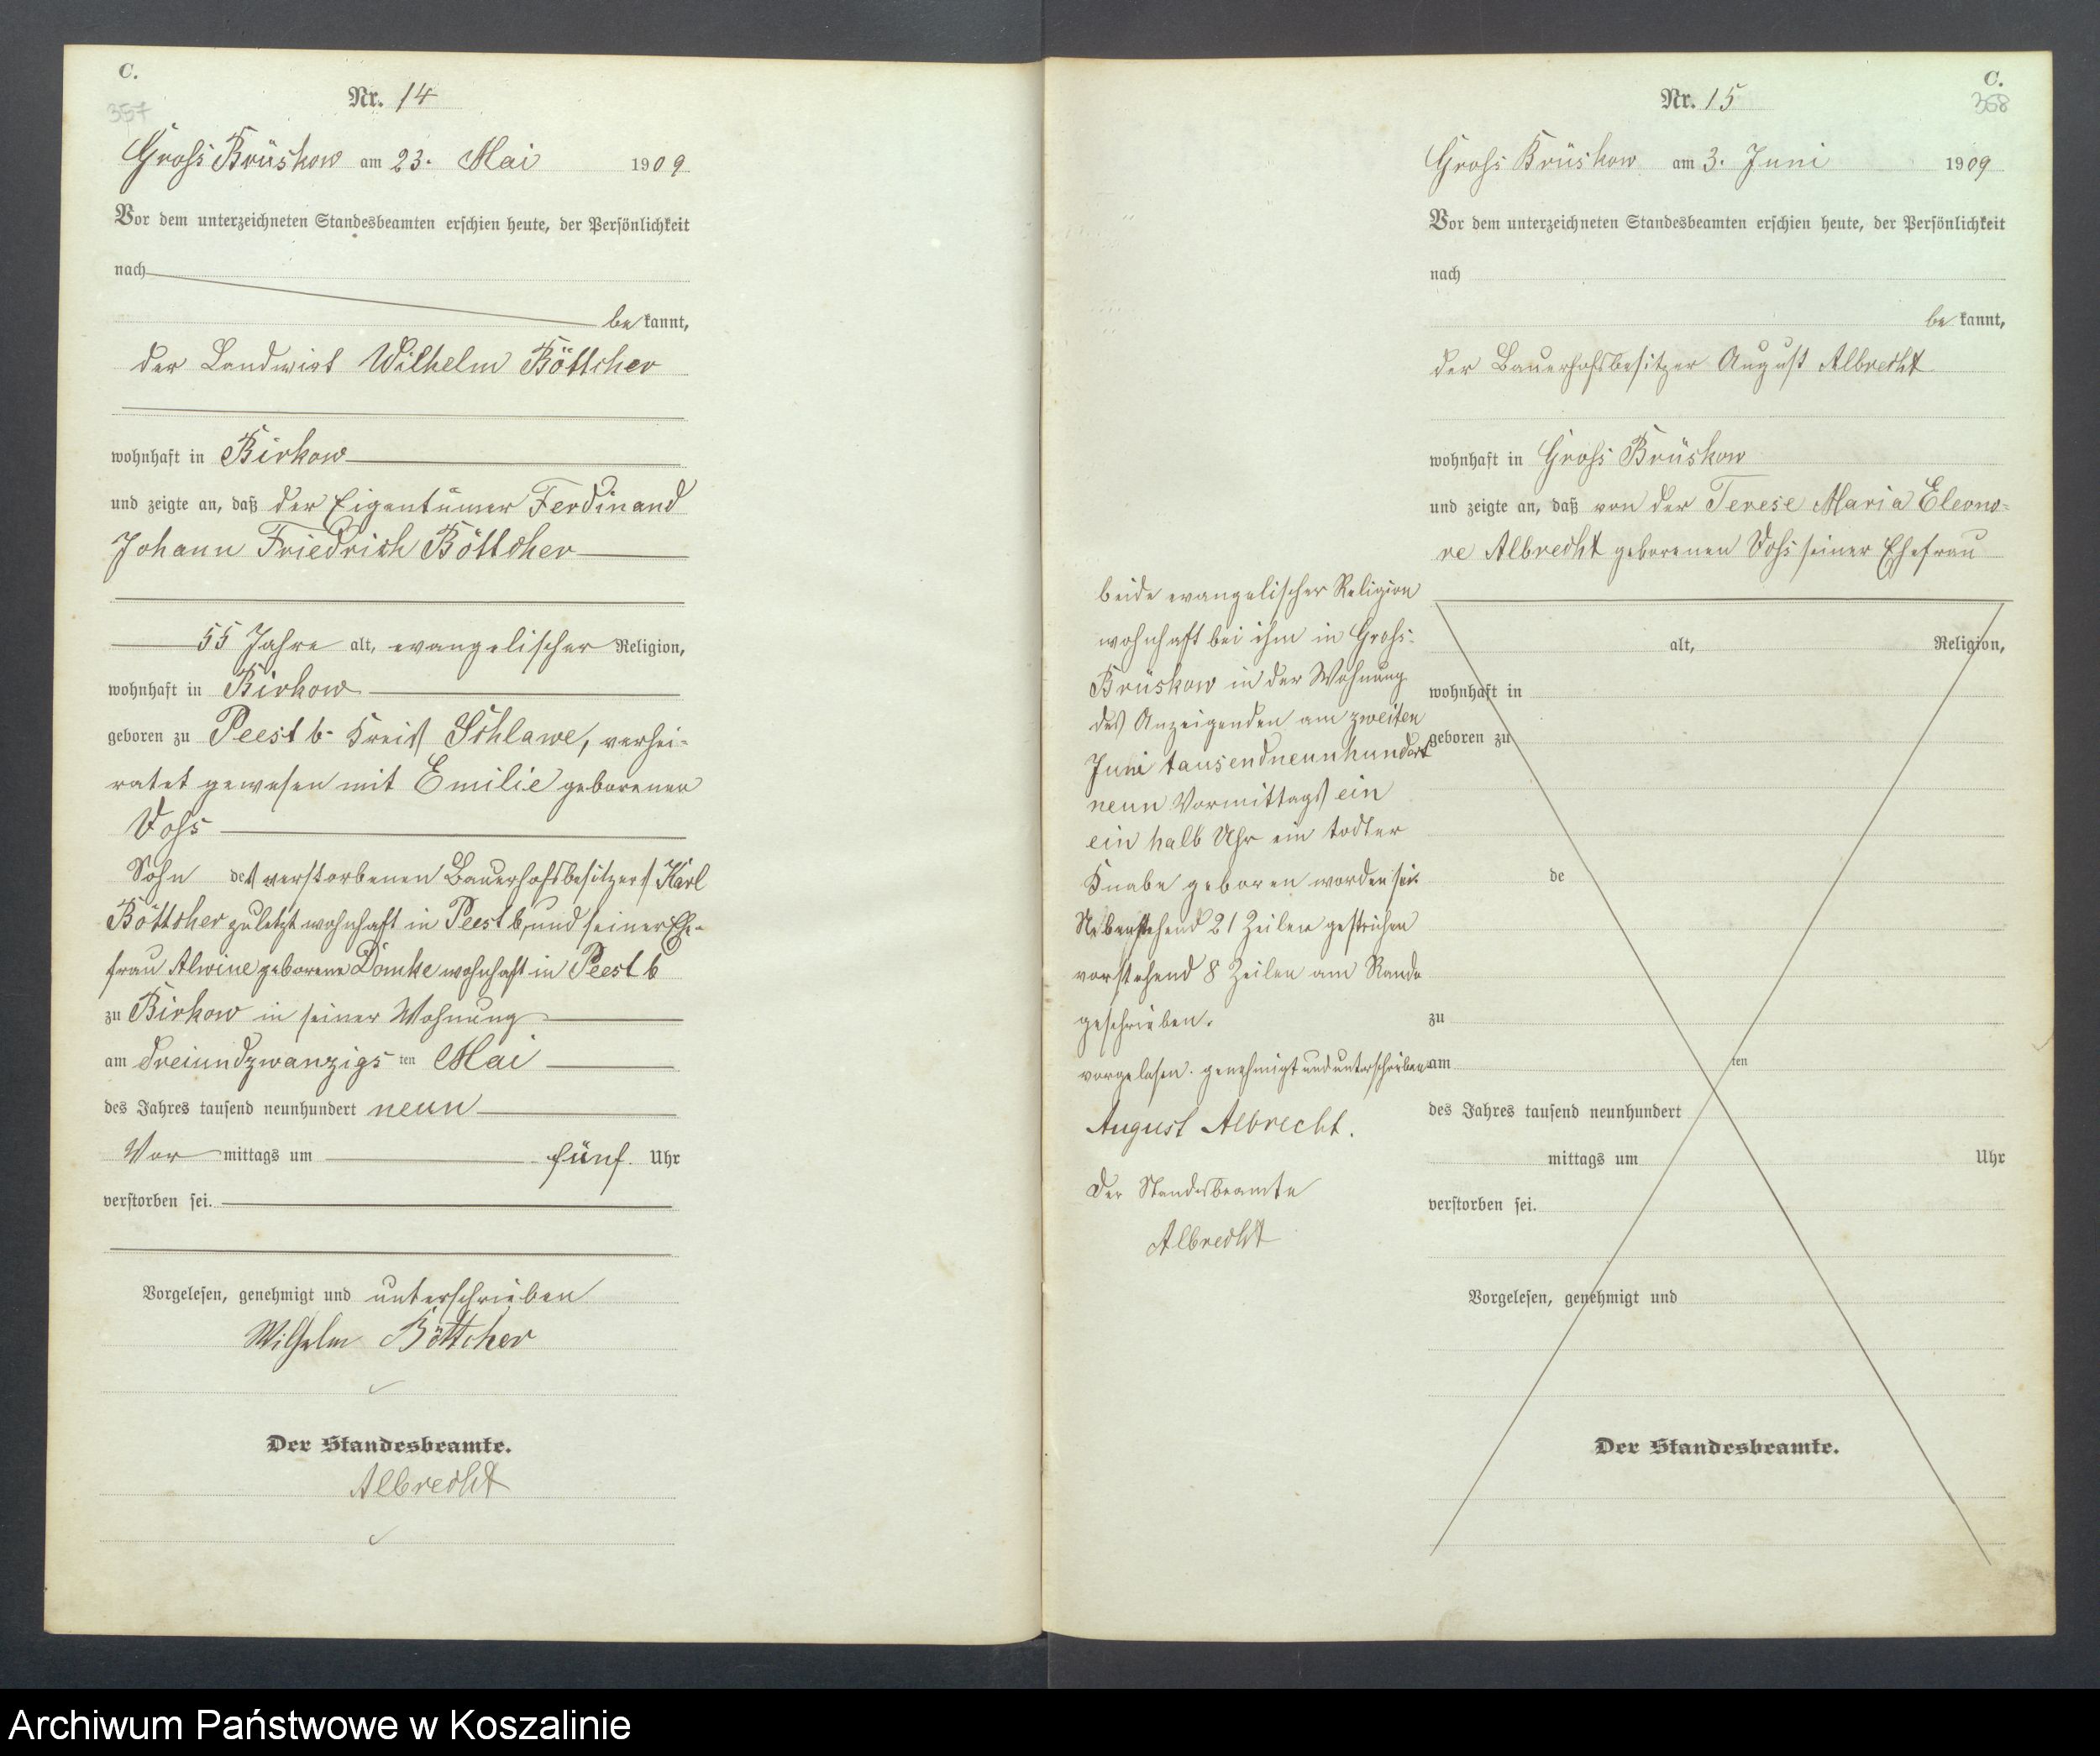 C.
357
Nr. 14
Gross Brüskow am 23. Mai 1909
Vor dem unterzeichneten Standesbeamten erschien heute, der Persönlichkeit
nach
be kannt,
der Landwirt Wilhelm Böttcher
wohnhaft in Birkow
und zeigte an, daß der Eigentümer Ferdinand
Johann Friedrich Böttcher
55 Jahre alt, evangelischer Religion,
wohnhaft in Birkow
geboren zu Peest b. Kreis Schlawe, verhei-
ratet gewesen mit Emilie geborenen
Voss
Sohn des verstorbenen Bauerhofsbesitzers Karl
Böttcher zuletzt wohnhaft in Peest b, und seiner Ehe-
frau Alwine geborene Domke wohnhaft in Peest b
zu Birkow in seiner Wohnung
am dreiundzwanzigs ten Mai
des Jahres tausend neunhundert neun
Vor mittags um fünf Uhr
verstorben sei.
Vorgelesen, genehmigt und unterschrieben
Wilhelm Böttcher
Der Standesbeamte.
Albrecht
C.
358
Nr. 15
Gross Brüskow am 3. Juni 1909
Vor dem unterzeichneten Standesbeamten erschien heute, der Persönlichkeit
nach
be kannt,
der Bauerhofsbesitzer August Albrecht
wohnhaft in Gross Brüskow
und zeigte an, daß von der Terese Maria Eleono-
re Albrecht geborenen Voss seiner Ehefrau
beide evangelischer Religion
wohnhaft bei ihm in Gross-
Brüskow in der Wohnung
des Anzeigenden am zweiten
Juni tausendneunhundert
neun Vormittags ein
ein halb Uhr ein todter
Knabe geboren worden sei.
Nebenstehend 21 Zeilen gestrichen
vorstehend 8 Zeilen am Rande
geschrieben.
vorgelesen. genehmigt und unterschrieben
August Albrecht.
Der Standesbeamte
Albrecht
alt, Religion,
wohnhaft in
geboren zu
de
zu
am ten
des Jahres tausend neunhundert
mittags um Uhr
verstorben sei.
Vorgelesen, genehmigt und
Der Standesbeamte.
Archiwum Państwowe w Koszalinie